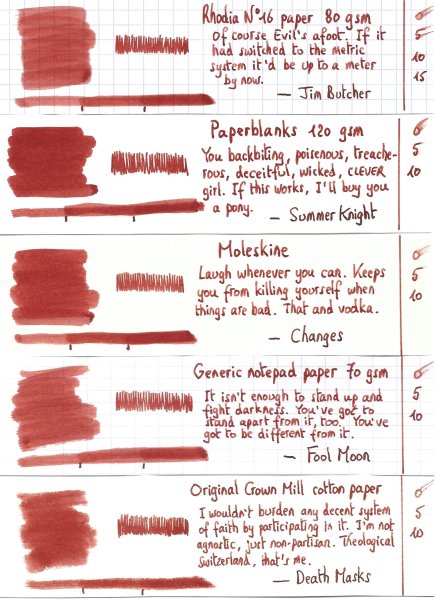 Rhodia N°16 paper 80 gsm
Of course Evil's afoot. If it
had switched to the metric
system it'd be up to a meter
by now.
— Jim Butcher
0
5
10
15
Paperblanks 120 gsm
You backbiting, poisenous, treache-
rous, deceitful, wicked, CLEVER
girl. If this works, I'll buy you
a pony.
— Summer Knight
0
5
10
Moleskine
Laugh whenever you can. Keeps
you from killing yourself when
things are bad. That and vodka.
— Changes
0
5
10
Generic notepad paper 70 gsm
It isn't enough to stand up and
fight darkness. You've got to
stand apart from it, too. You've
got to be different from it.
— Fool Moon
0
5
10
Original Crown Mill cotton paper
I wouldn't burden any decent system
of faith by participating in it. I'm not
agnostic, just non-partisan. Theological
Switzerland, that's me.
— Death Masks
0
5
10